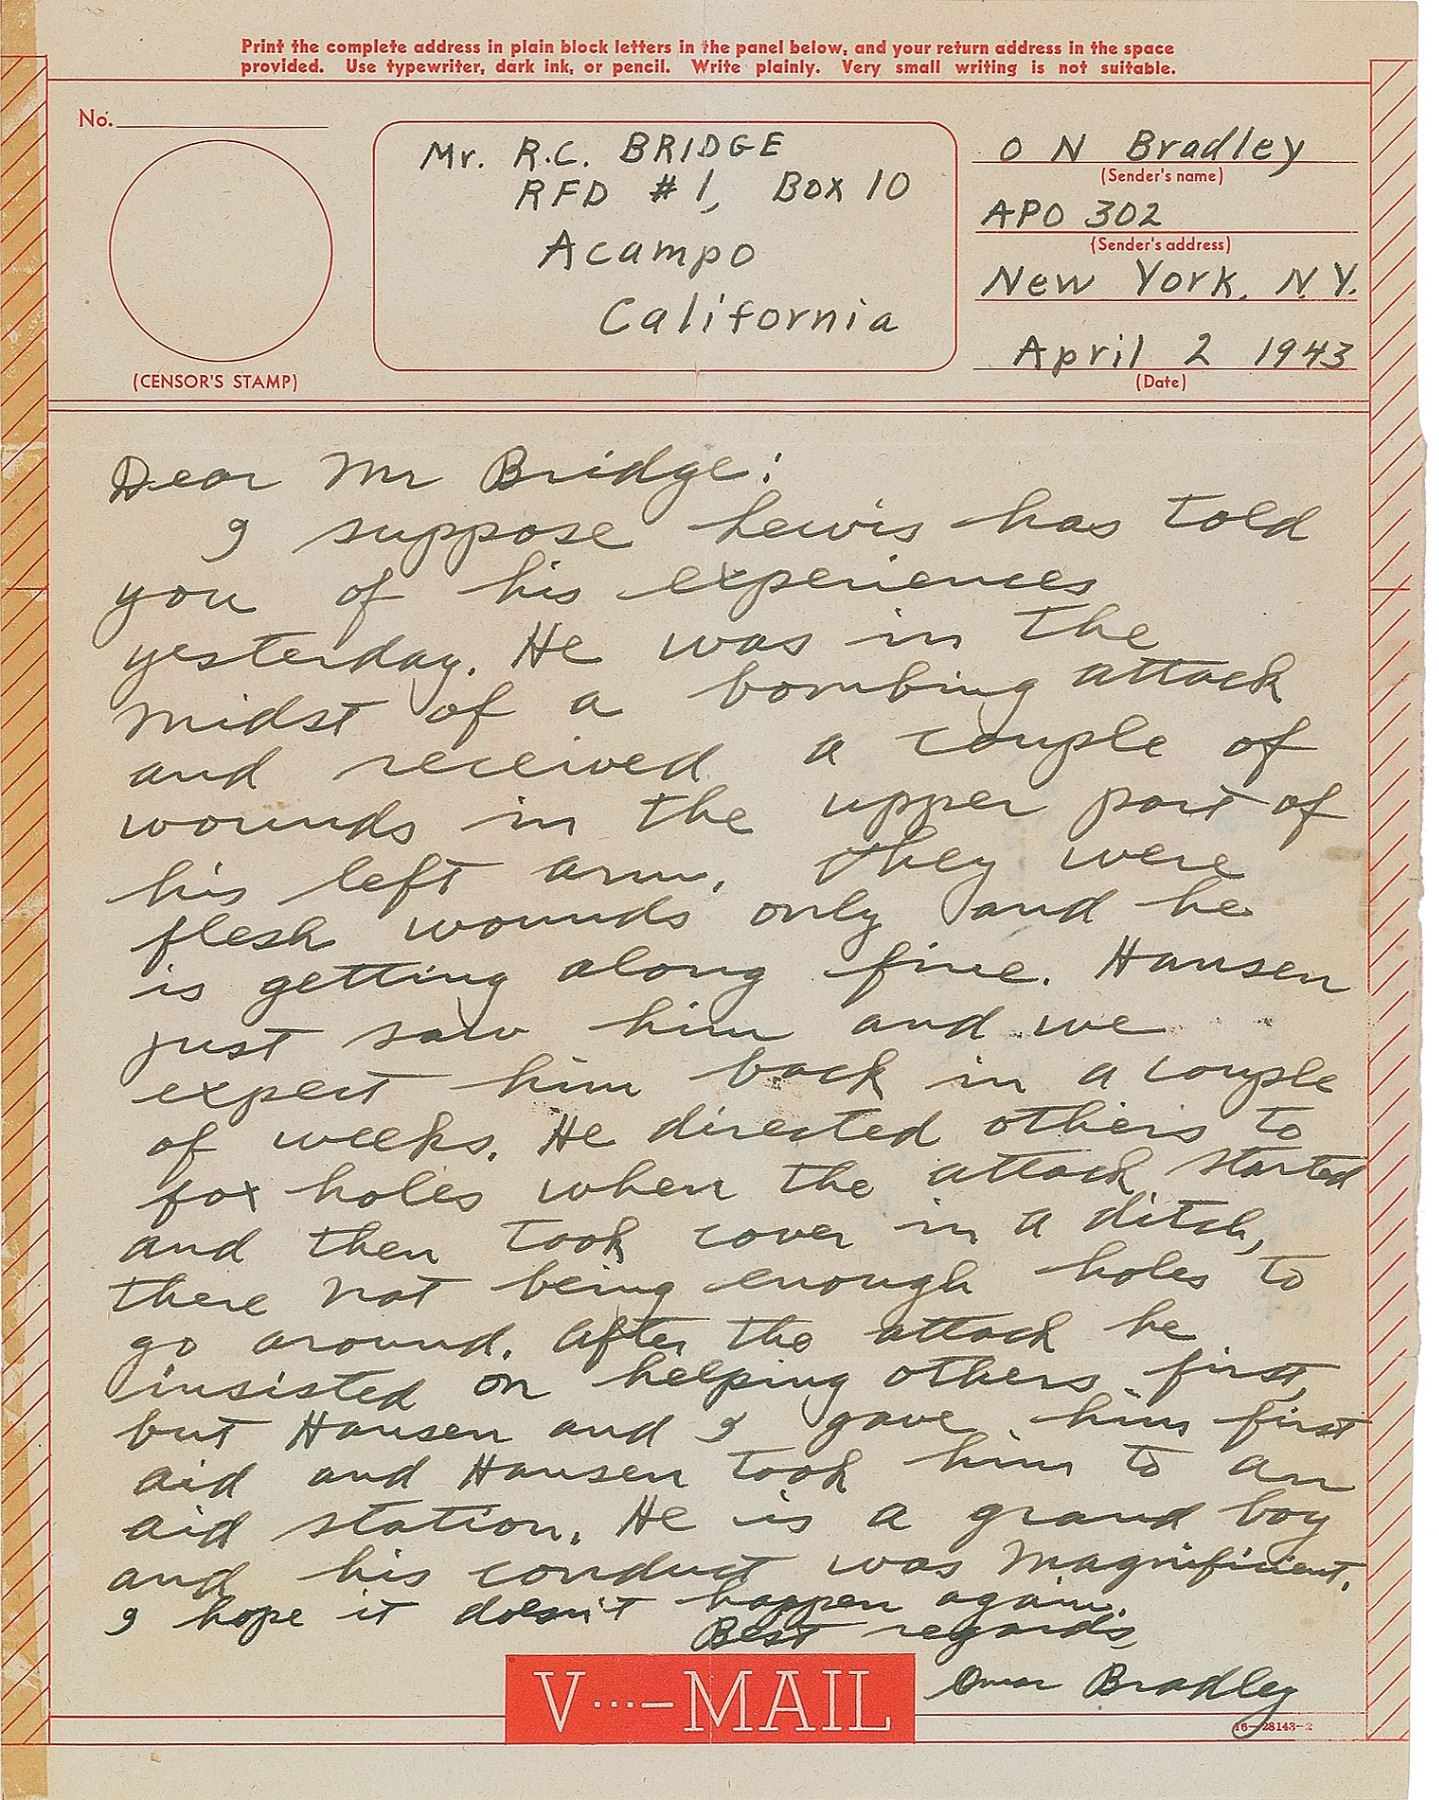 Print the complete address in plain block letters in the panel below, and your return address in the space
provided. Use typewriter, dark ink, or pencil. Write plainly. Very small writing is not suitable.
No.
(CENSOR'S STAMP)
Mr. R.C. BRIDGE
RFD #1, Box 10
Acampo
California
O N Bradley
(Sender's name)
APO 302
(Sender's address)
New York, N.Y.
April 2 1943
(Date)
Dear Mr Bridge:
I suppose Lewis has told
you of his experiences
yesterday. He was in the
midst of a bombing attack
and received a couple of
wounds in the upper part of
his left arm. They were
flesh wounds only and he
is getting along fine. Hansen
just saw him and we
expect him back in a couple
of weeks. He directed others to
fox holes when the attack started
and then took cover in a ditch,
there not being enough holes to
go around. After the attack he
insisted on helping others first,
but Hansen and I gave him first
aid and Hansen took him to an
aid station. He is a grand boy
and his conduct was magnificient.
I hope it doesn't happen again.
Best regards,
Omar Bradley
V···—MAIL
16—28143-2